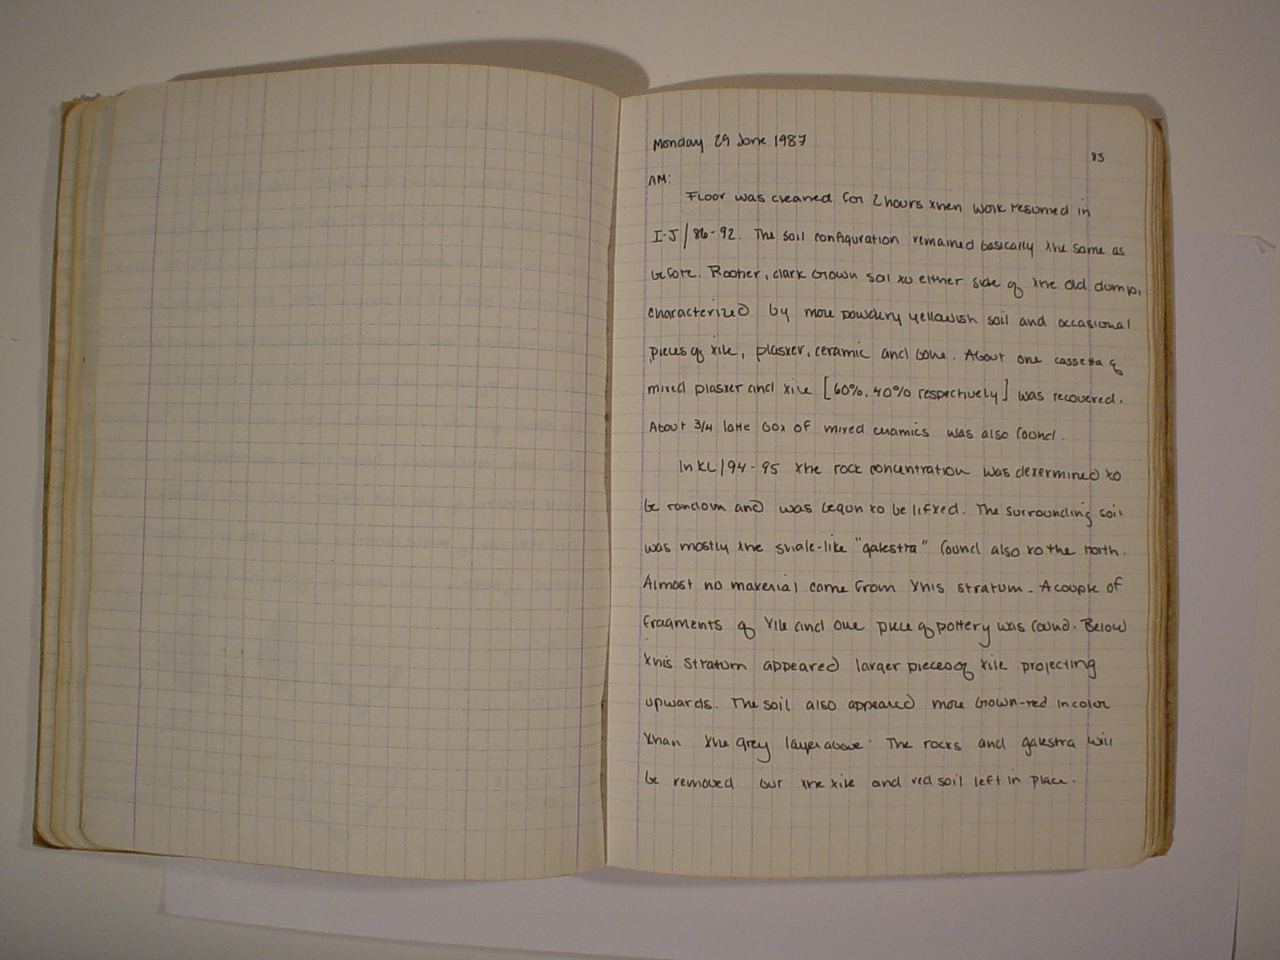 Monday 29 June 1987
AM:
Floor was cleaned for 2 hours then work resumed in
I-J/86-92. The soil configuration remained basically the same as
before. Rootier, dark brown soil to either side of the old dump,
characterized by more powdery yellowish soil and occasional
pieces of tile, plaster, ceramic and bone. About one cassetta of
mixed plaster and tile [60%, 40% respectively] was recovered.
About 3/4 latte box of mixed ceramics was also found.
In KL/94-95 the rock concentration was determined to
be random and was begun to be lifted. The surrounding soil
was mostly the shale-like "galestra" found also to the north.
Almost no material came from this stratum. A couple of
fragments of tile and one piece of pottery was found. Below
this stratum appeared larger pieces of tile projecting
upwards. The soil also appeared more brown-red in color
than the grey layer above. The rocks and galestra will
be removed but the tile and red soil left in place.